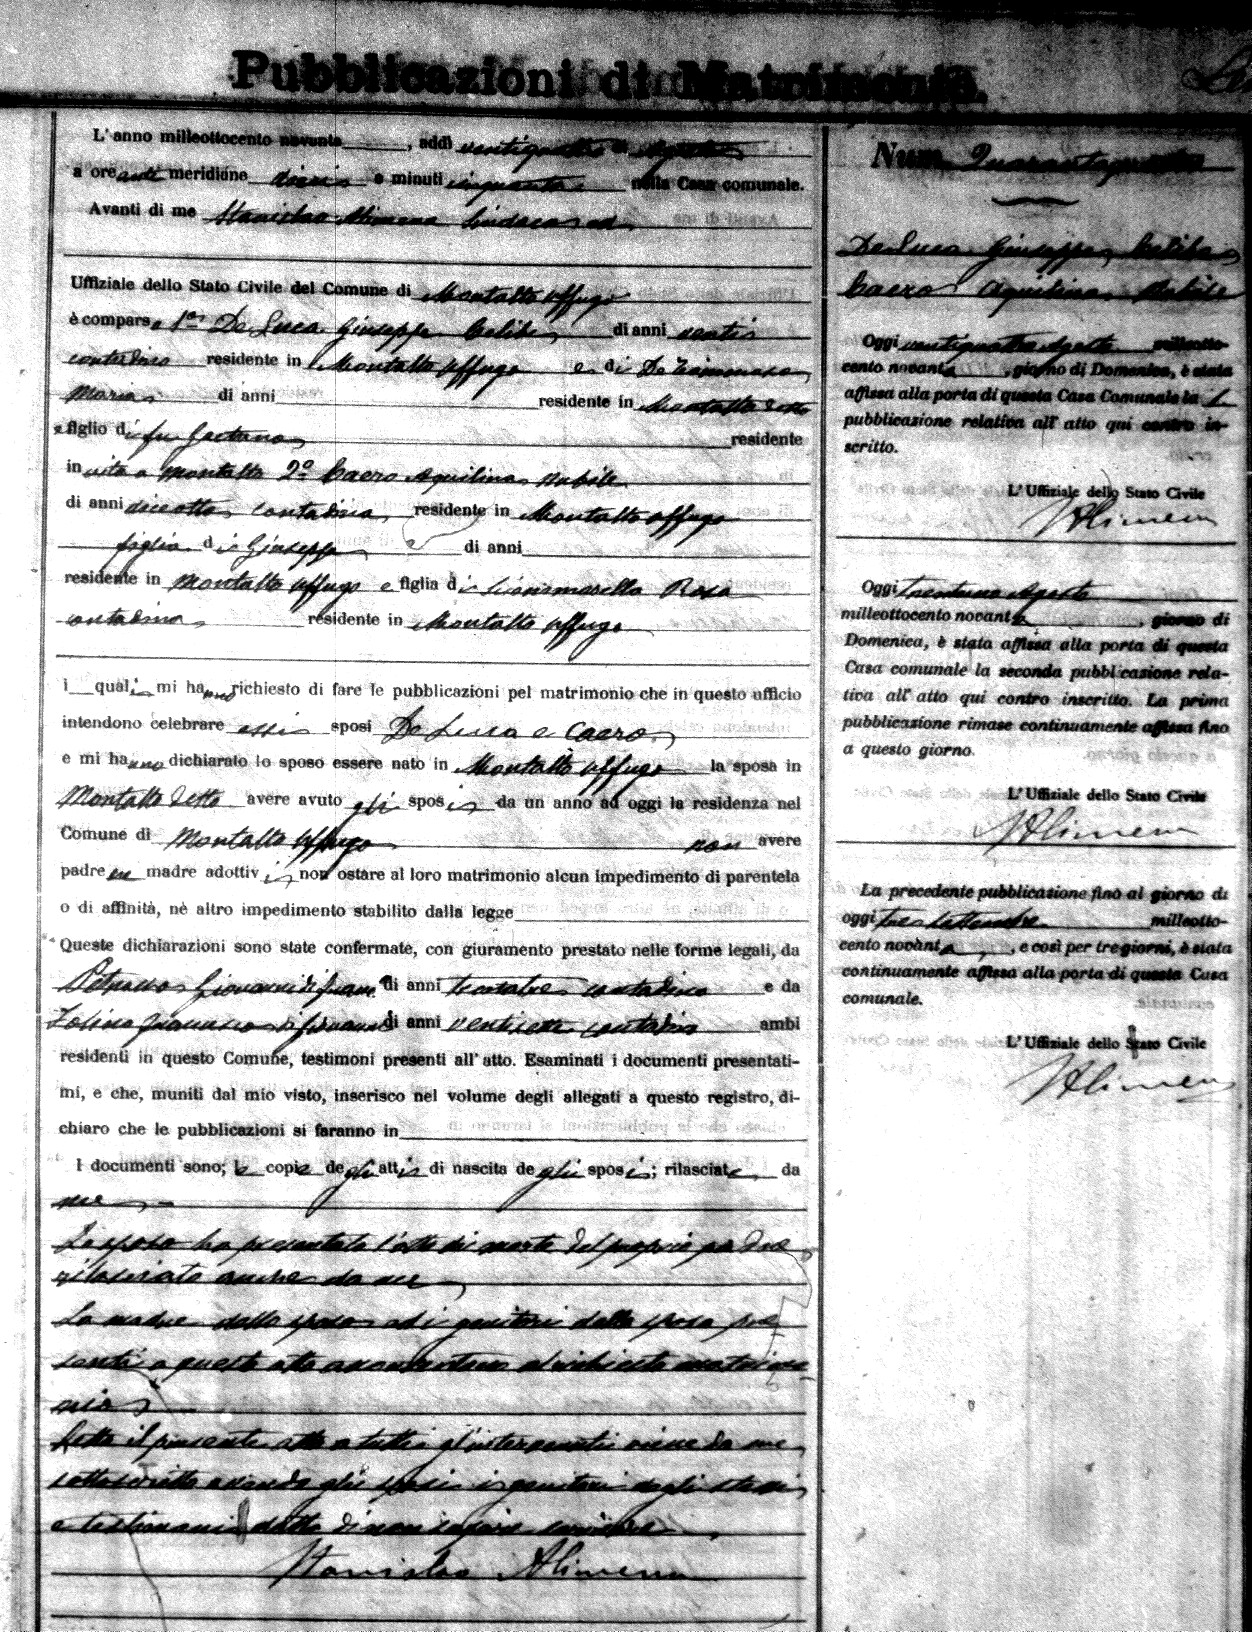 Pubblicazioni di Matrimonio.
L'anno milleottocento novanta, addì ventiquattro di Agosto
a ore anti meridiane dieci e minuti cinquanta nella Casa comunale.
Avanti di me Stanislao Alimena Sindaco ed
Uffiziale dello Stato Civile del Comune di Montalto Uffugo
è compars 1º De Luca Giuseppe Celibe di anni venti
contadino residente in Montalto Uffugo e di
Maria di anni residente in Montalto detto
e figlio di fu Gaetano residente
in vita a Montalto 2º Caero Aquilina Nubile
di anni diciotto contadina residente in Montalto Uffugo
figlia di Giuseppe di anni
residente in Montalto Uffugo e figlia di Rosa
contadina residente in Montalto Uffugo
i quali mi hanno richiesto di fare le pubblicazioni pel matrimonio che in questo ufficio
intendono celebrare essi sposi De Luca e Caero
e mi hanno dichiarato lo sposo essere nato in Montalto Uffugo la sposa in
Montalto detto avere avuto gli sposi da un anno ad oggi la residenza nel
Comune di Montalto Uffugo non avere
padre madre adottivi non ostare al loro matrimonio alcun impedimento di parentela
o di affinità, nè altro impedimento stabilito dalla legge
Queste dichiarazioni sono state confermate, con giuramento prestato nelle forme legali, da
Giovanni di anni trentatre contadino e da
Francesco di anni ventisette contadino ambi
residenti in questo Comune, testimoni presenti all'atto. Esaminati i documenti presentati-
mi, e che, muniti dal mio visto, inserisco nel volume degli allegati a questo registro, di-
chiaro che le pubblicazioni si faranno in
I documenti sono; le copie degli atti di nascita degli sposi; rilasciate da
me
Lo sposo ha presentato l'atto di morte del proprio padre
rilasciato anche da me
La madre dello sposo ed i genitori della sposa pre
senti a questo atto acconsentono al richiesto matrimo
nio
Letto il presente atto a tutti gl'intervenuti viene da me
sottoscritto avendo gli sposi i genitori degli stessi
e testimoni detto di non sapere scrivere
Stanislao Alimena
Num. Quarantaquattro
De Luca Giuseppe Celibe
Caero Aquilina Nubile
Oggi ventiquattro Agosto milleotto-
cento novanta, giorno di Domenica, è stata
affissa alla porta di questa Casa Comunale la
pubblicazione relativa all'atto qui contro in-
scritto.
L'Uffiziale dello Stato Civile
SAlimena
Oggi trentuno Agosto
milleottocento novanta, giorno di
Domenica, è stata affissa alla porta di questa
Casa comunale la seconda pubblicazione rela-
tiva all'atto qui contro inscritto. La prima
pubblicazione rimase continuamente affissa fino
a questo giorno.
L'Uffiziale dello Stato Civile
SAlimena
La precedente pubblicazione fino al giorno di
oggi tre Settembre milleotto-
cento novanta, e così per tre giorni, è stata
continuamente affissa alla porta di questa Casa
comunale.
L'Uffiziale dello Stato Civile
SAlimena